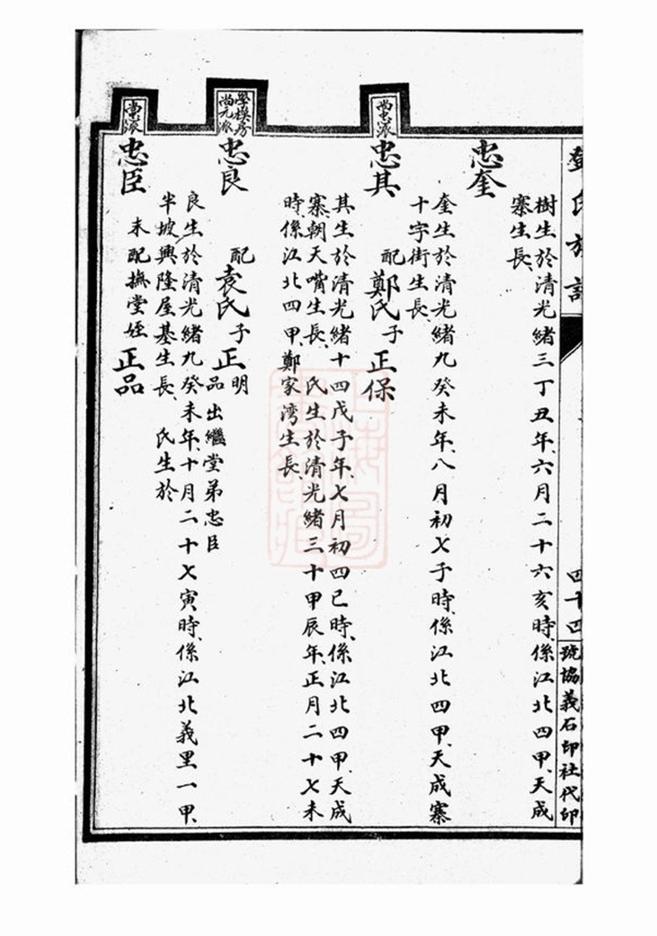 鄧氏族譜
四十四
號協義石印社代印
樹生於清光緒三丁丑年、六月二十六亥時、係江北四甲、天成
寨生長、
忠奎
奎生於清光緒九癸未年、八月初七子時、係江北四甲、天成寨
十字街生長、
尚忠派
忠其
配鄭氏子正保
其生於清光緒十四戊子年、七月初四巳時、係江北四甲、天成
寨、朝天嘴生長、氏生於清光緒三十甲辰年、正月二十七未
時、係江北四甲、鄭家湾生長、
學模房
尚元派
忠良
配袁氏子正明
品出繼堂弟忠臣
良生於清光緒九癸未年、十月二十七寅時、係江北義里一甲、
半坡興隆屋基生長、氏生於
派
忠臣
未配撫堂姪正品